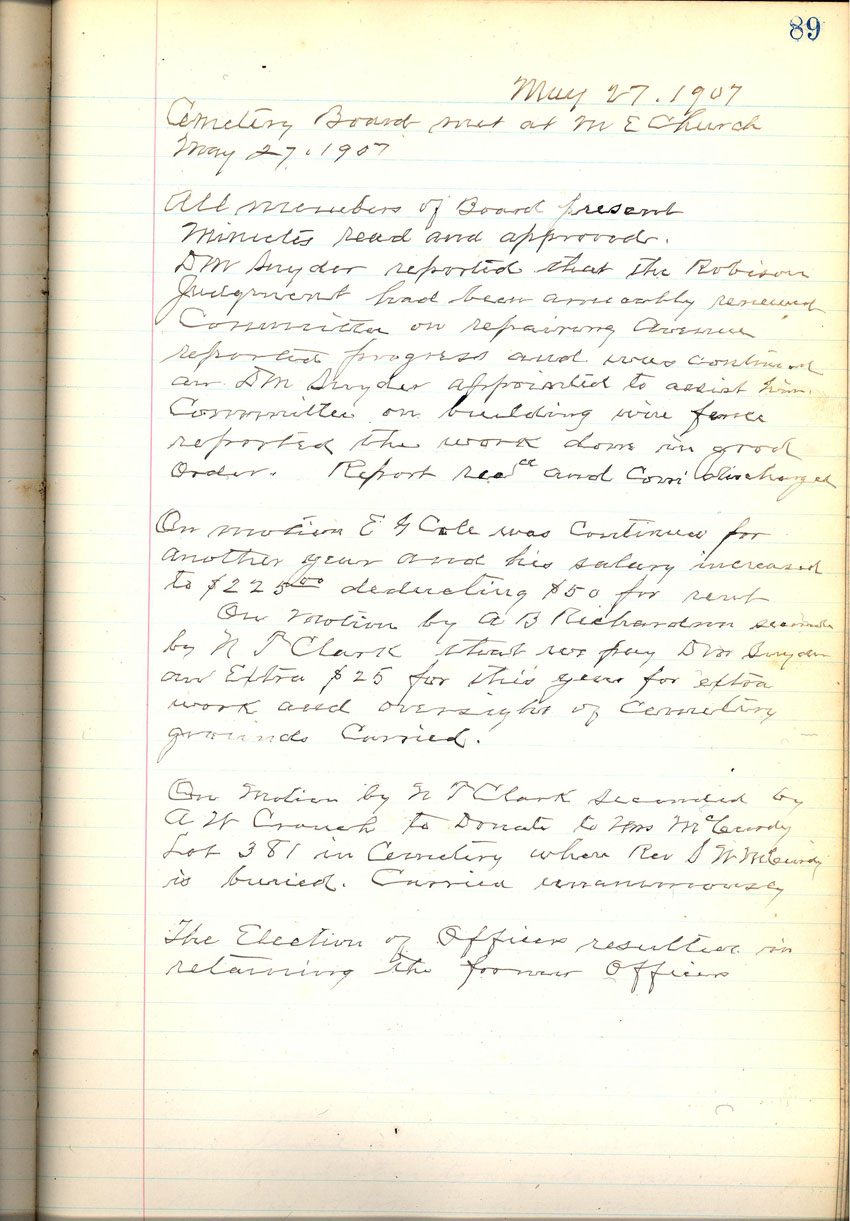 89
May 27. 1907
Cemetery Board met at M E Church
May 27. 1907
All members of Board present
Minutes read and approved.
D M Snyder reported that the Robison
Judgment had been amicably renewed
Committee on repairing Avenue
reported progress and was continued
an D M Snyder appointed to assist him.
Committee on building wire fence
reported the work done in good
Order. Report recd and Com discharged
On motion E G Cole was Continued for
another year and his salary increased
to $225.00 deducting $50 for rent
On Motion by A B Richardson second
by N T Clark that we pay D M Snyder
an Extra $25 for this year for extra
work and oversight of Cemetery
grounds Carried.
On Motion by N T Clark seconded by
A W Crouch to Donate to Mrs McCurdy
Lot 381 in Cemetery where Rev S W McCurdy
is buried. Carried unanimously
The Election of Officers resulted in
retaining the former Officers